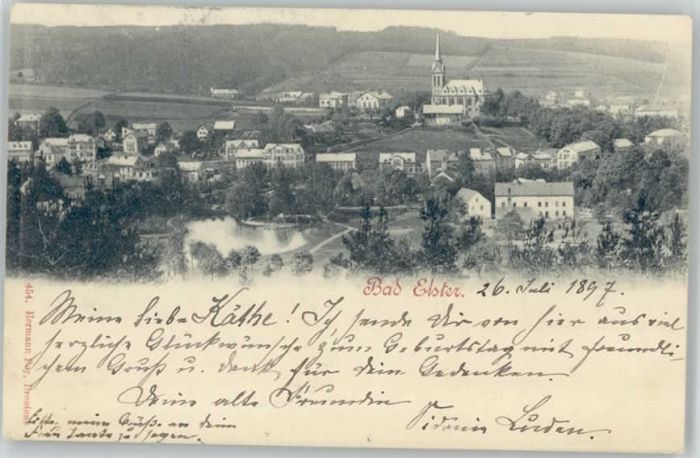 Bad Elster. 26. Juli 1897.
Meine liebe Käthe! Ich sende Dir von hier aus viel
herzliche Glückwünsche zum Geburtstag mit freundli-
chem Gruß u. Dank für Dein Gedenken.
Deine alte Freundin
Sidonie Luden.
Bitte meine Grüße an Deine
Frau Tante zu sagen.
454. Hermann Poy, Dresden